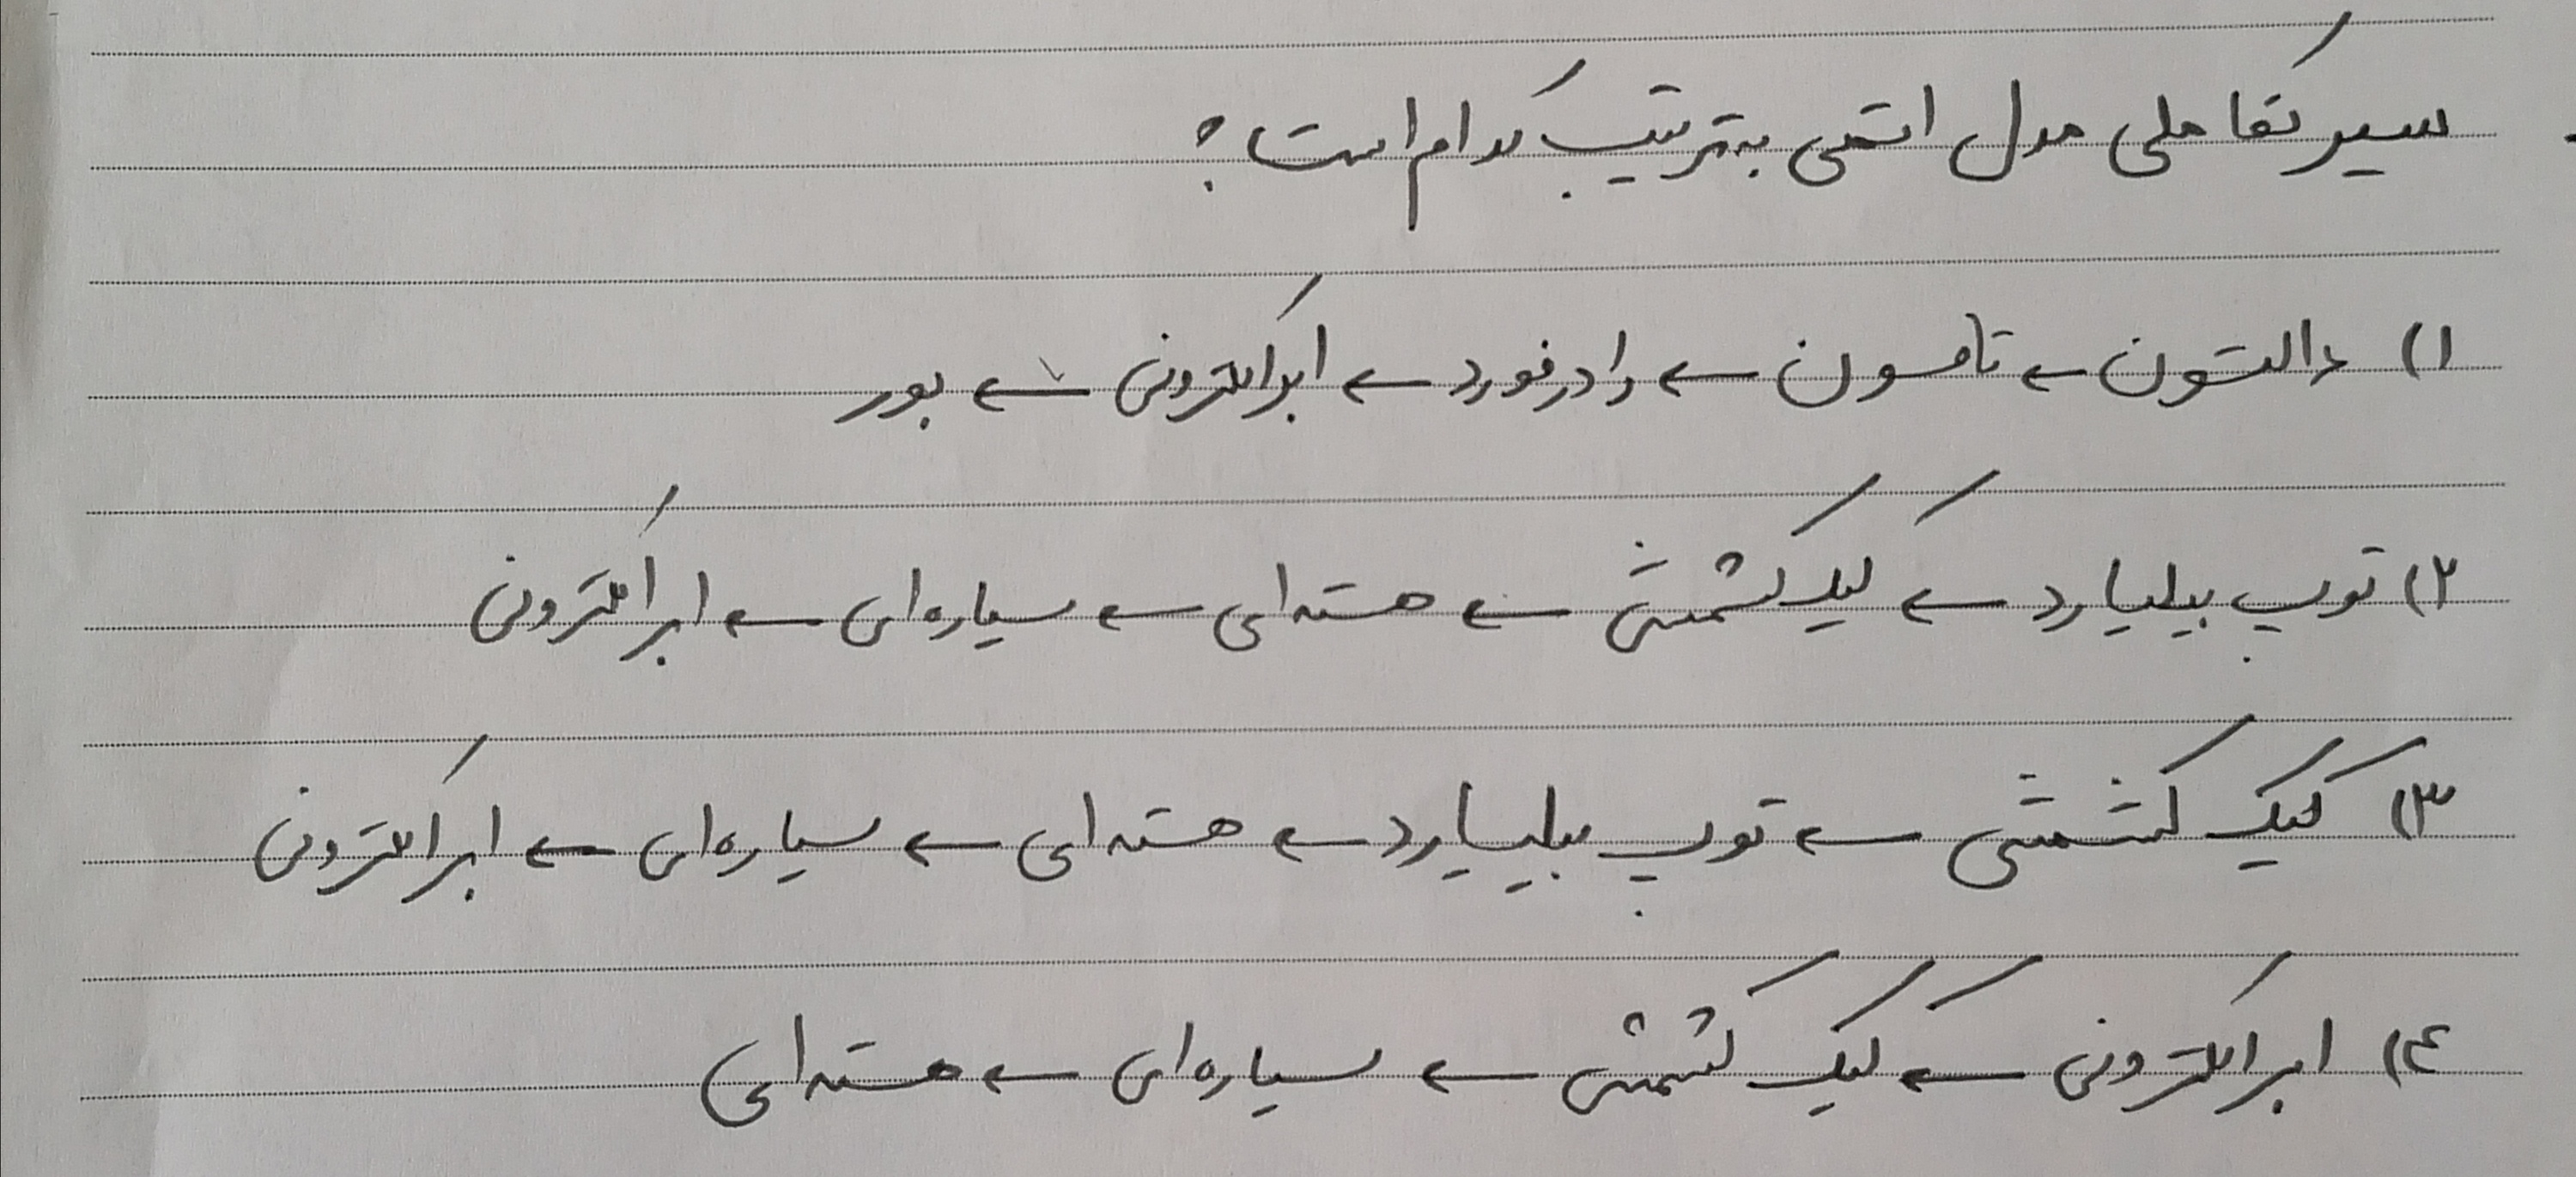 سیر تکاملی مدل اتمی به ترتیب کدام است؟
۱) دالتون ← تامسون ← رادرفورد ← ابرالکترونی ← بور
۲) توپ بیلیارد ← کیک کشمشی ← هسته‌ای ← سیاره‌ای ← ابرالکترونی
۳) کیک کشمشی ← توپ بیلیارد ← هسته‌ای ← سیاره‌ای ← ابرالکترونی
۴) ابرالکترونی ← کیک کشمشی ← سیاره‌ای ← هسته‌ای